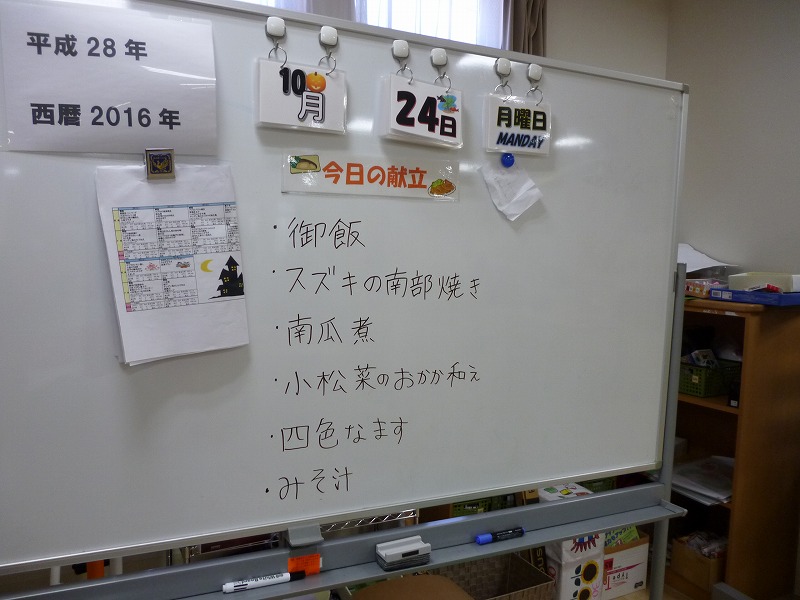 平成 28 年
西暦 2016 年
10月
24日
月曜日
MANDAY
今日の献立
・御飯
・スズキの南部焼き
・南瓜煮
・小松菜のおかか和え
・四色なます
・みそ汁